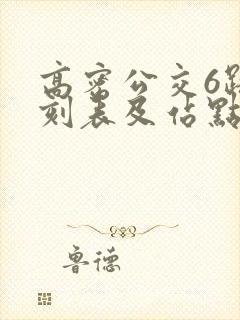 高密公交6路
刻表及佔點
鲁德